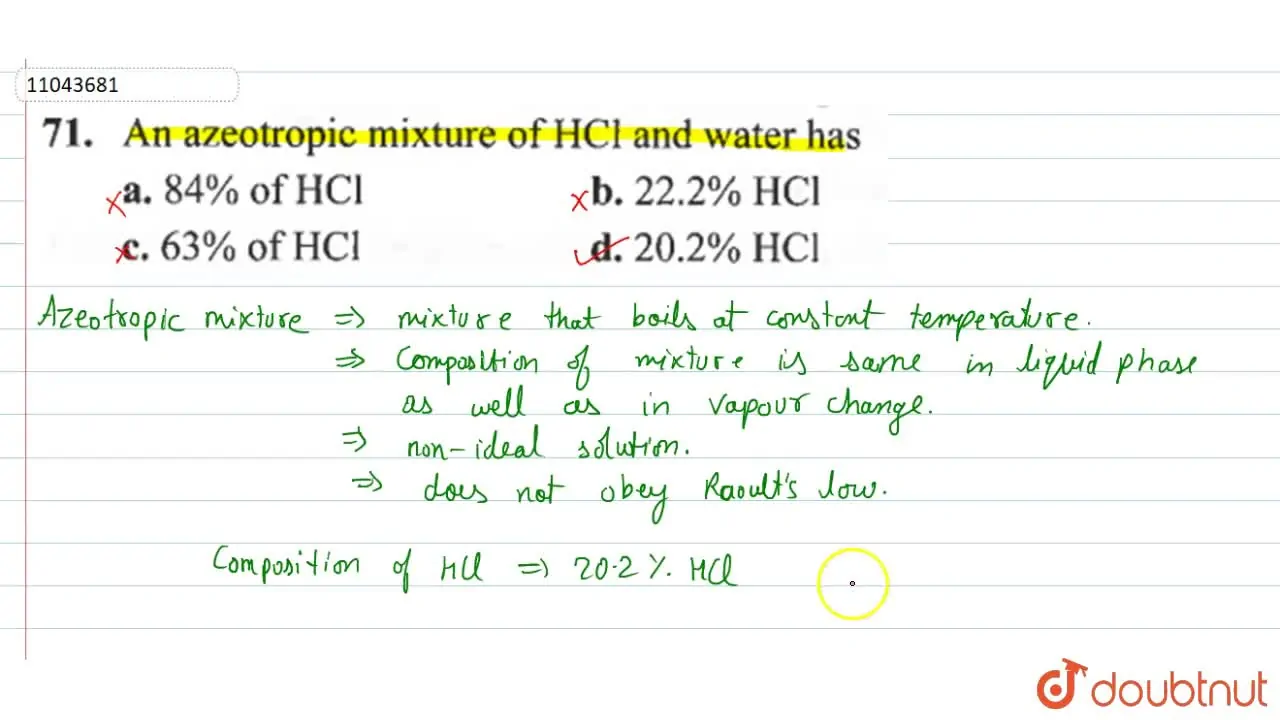 11043681
71. An azeotropic mixture of HCl and water has
a. 84% of HCl b. 22.2% HCl
c. 63% of HCl d. 20.2% HCl
Azeotropic mixture ⇒ mixture that boils at constant temperature.
⇒ Composition of mixture is same in liquid phase
as well as in vapour change.
⇒ non-ideal solution.
⇒ does not obey Raoult's low.
Composition of HCl ⇒ 20.2 %. HCl
doubtnut